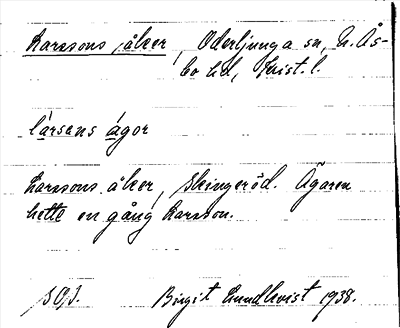 Larssons åker, Oderljunga sn, N. Ås-
bo hd, Krist. l.
lársans ágor
Larssons åker, Skingeröd. Ägaren
hette en gång Larsson.
SOJ. Birgit Lundkvist 1938.